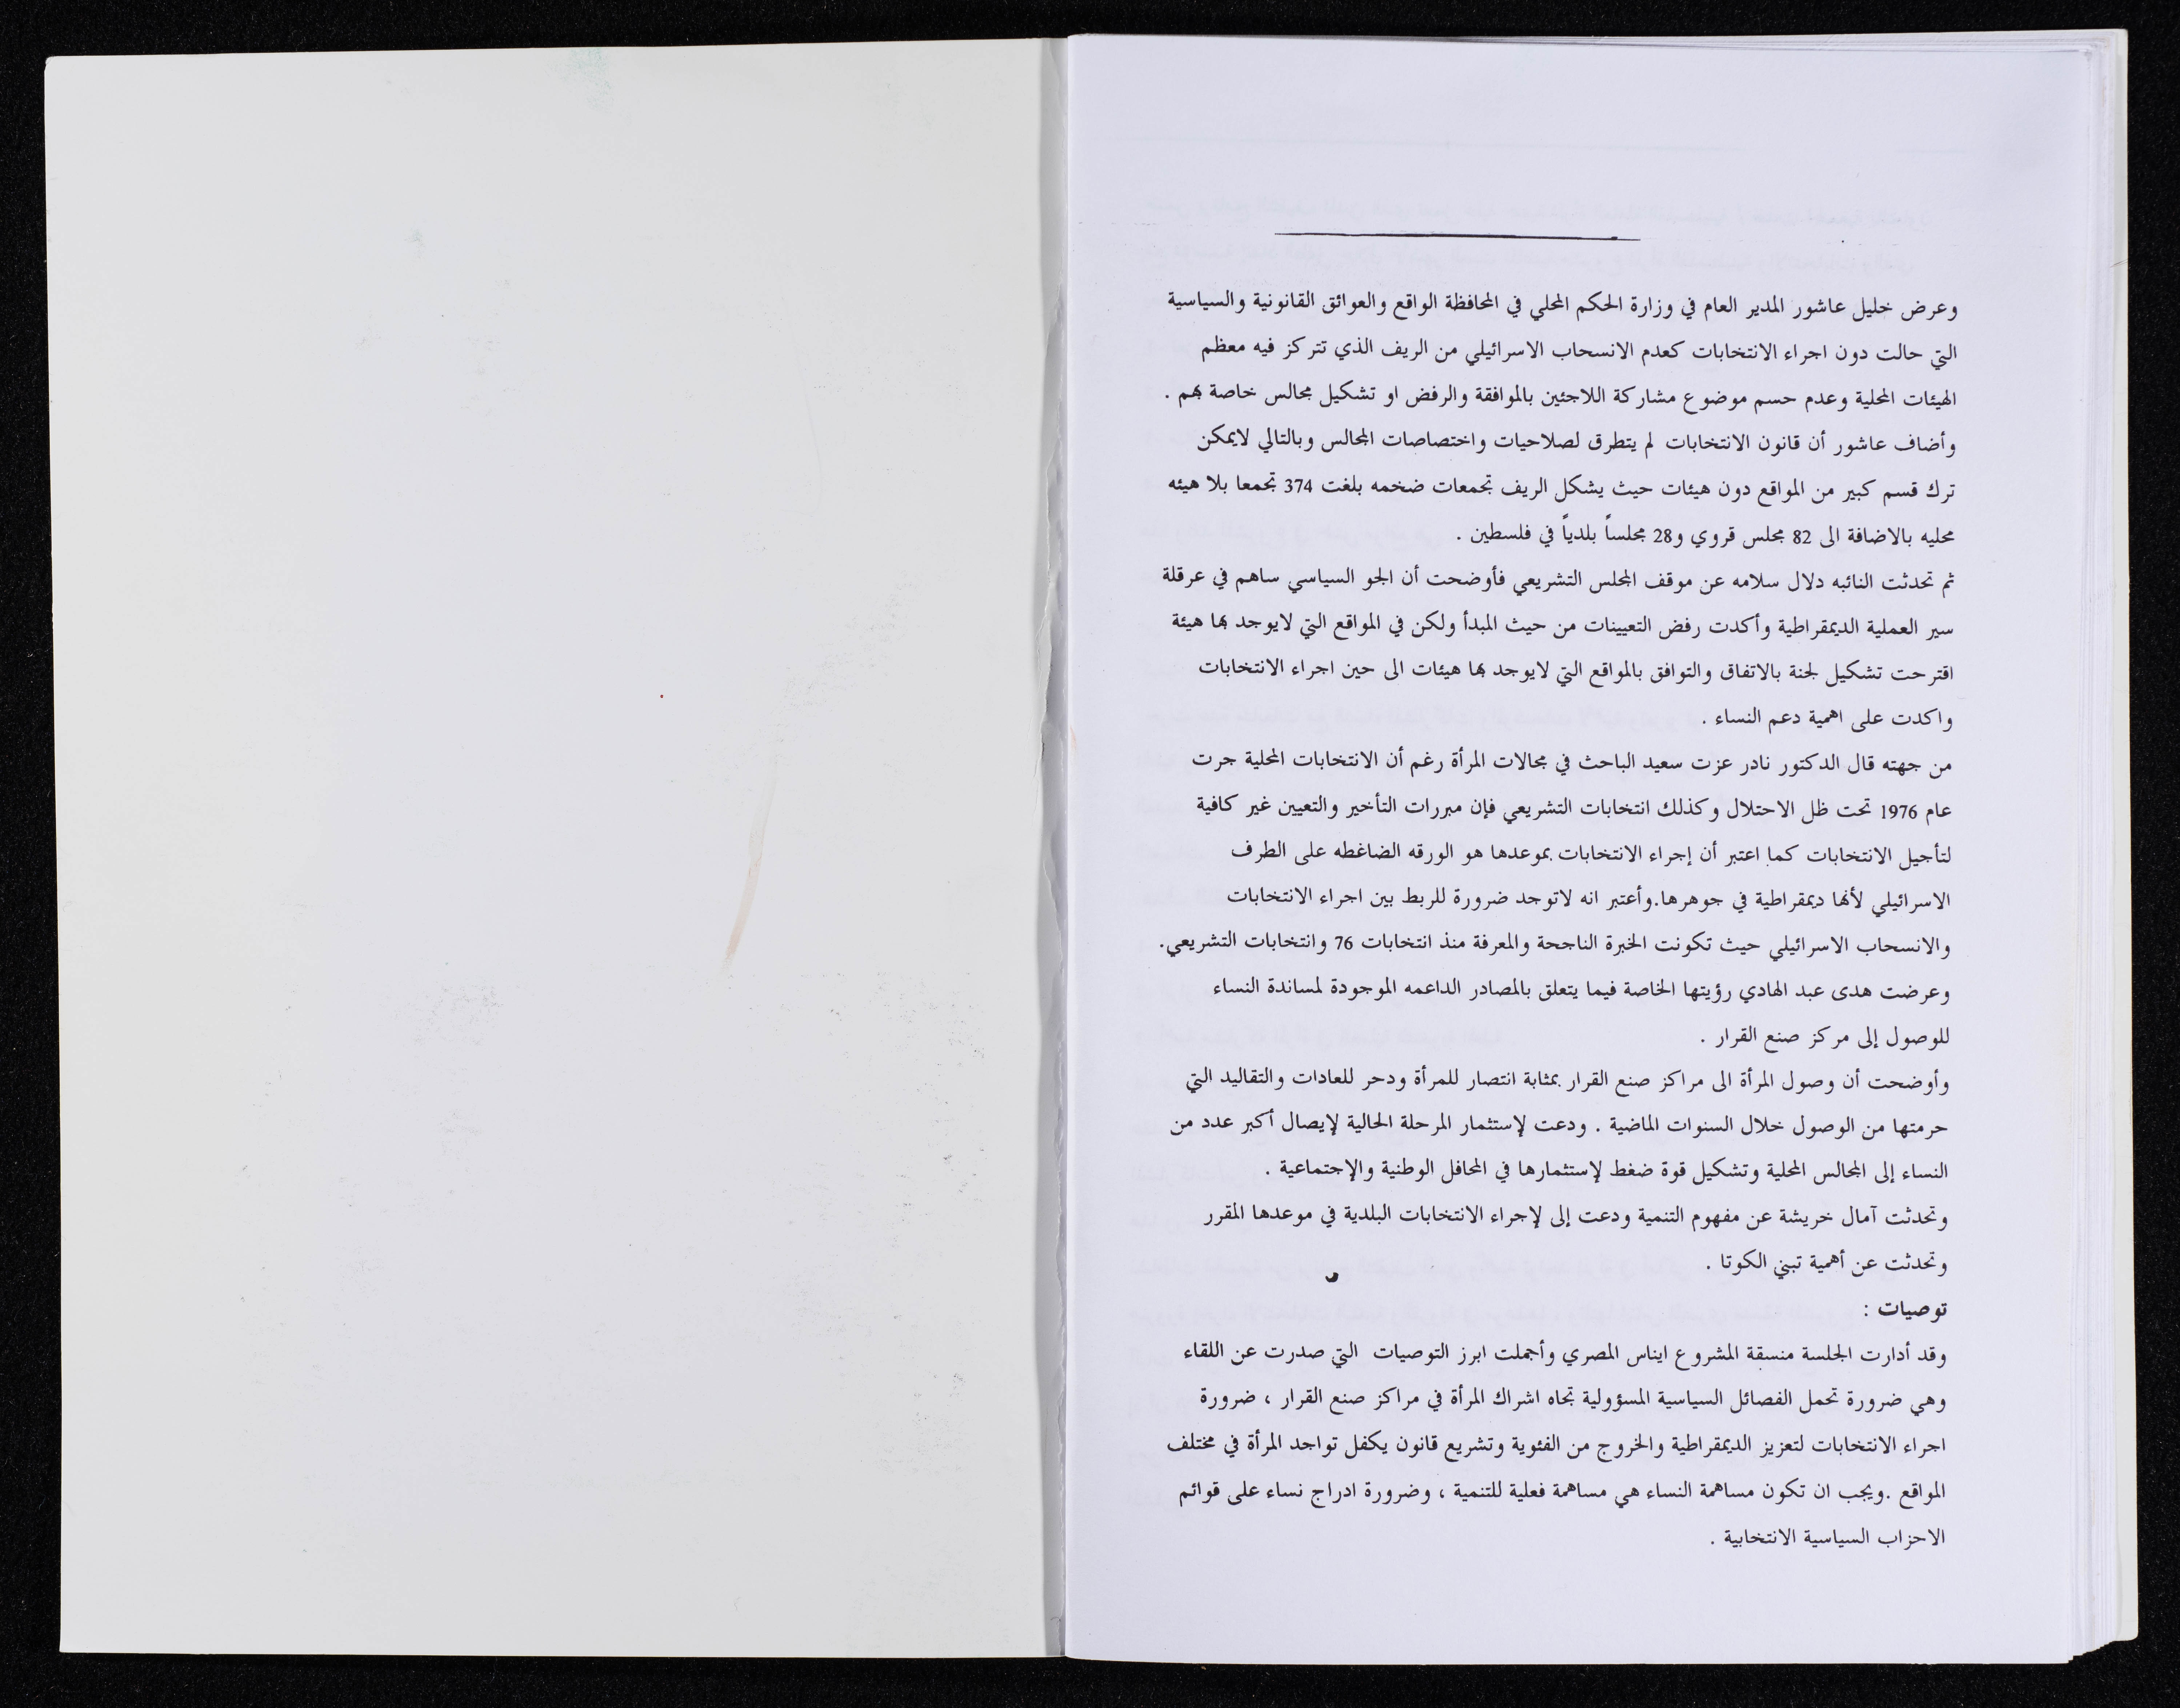 وعرض خليل عاشور المدير العام في وزارة الحكم المحلي في المحافظة الواقع والعوائق القانونية والسياسية
التي حالت دون اجراء الانتخابات كعدم الانسحاب الاسرائيلي من الريف الذي تتركز فيه معظم
الهيئات المحلية وعدم حسم موضوع مشاركة اللاجئين بالموافقة والرفض او تشكيل مجالس خاصة بهم .
وأضاف عاشور أن قانون الانتخابات لم يتطرق لصلاحيات واختصاصات المجالس وبالتالي لايمكن
ترك قسم كبير من المواقع دون هيئات حيث يشكل الريف تجمعات ضخمه بلغت 374 تجمعا بلا هيئه
محليه بالاضافة الى 82 مجلس قروي و28 مجلساً بلدياً في فلسطين .
ثم تحدثت النائبه دلال سلامه عن موقف المجلس التشريعي فأوضحت أن الجو السياسي ساهم في عرقلة
سير العملية الديمقراطية وأكدت رفض التعيينات من حيث المبدأ ولكن في المواقع التي لايوجد بها هيئة
اقترحت تشكيل لجنة بالاتفاق والتوافق بالمواقع التي لايوجد بها هيئات الى حين اجراء الانتخابات
واكدت على اهمية دعم النساء .
من جهته قال الدكتور نادر عزت سعيد الباحث في مجالات المرأة رغم أن الانتخابات المحلية جرت
عام 1976 تحت ظل الاحتلال وكذلك انتخابات التشريعي فإن مبررات التأخير والتعيين غير كافية
لتأجيل الانتخابات كما اعتبر أن إجراء الانتخابات بموعدها هو الورقه الضاغطه على الطرف
الاسرائيلي لأنها ديمقراطية في جوهرها.وأعتبر انه لاتوجد ضرورة للربط بين اجراء الانتخابات
والانسحاب الاسرائيلي حيث تكونت الخبرة الناجحة والمعرفة منذ انتخابات 76 وانتخابات التشريعي.
وعرضت هدى عبد الهادي رؤيتها الخاصة فيما يتعلق بالمصادر الداعمه الموجودة لمساندة النساء
للوصول إلى مركز صنع القرار .
وأوضحت أن وصول المرأة الى مراكز صنع القرار بمثابة انتصار للمرأة ودحر للعادات والتقاليد التي
حرمتها من الوصول خلال السنوات الماضية . ودعت لإستثمار المرحلة الحالية لإيصال أكبر عدد من
النساء إلى المجالس المحلية وتشكيل قوة ضغط لإستثمارها في المحافل الوطنية والإجتماعية .
وتحدثت آمال خريشة عن مفهوم التنمية ودعت إلى لإجراء الانتخابات البلدية في موعدها المقرر
وتحدثت عن أهمية تبني الكوتا .
توصيات :
وقد أدارت الجلسة منسقة المشروع ايناس المصري وأجملت ابرز التوصيات التي صدرت عن اللقاء
وهي ضرورة تحمل الفصائل السياسية المسؤولية تجاه اشراك المرأة في مراكز صنع القرار ، ضرورة
اجراء الانتخابات لتعزيز الديمقراطية والخروج من الفئوية وتشريع قانون يكفل تواجد المرأة في مختلف
المواقع .ويجب ان تكون مساهمة النساء هي مساهمة فعلية للتنمية ، وضرورة ادراج نساء على قوائم
الاحزاب السياسية الانتخابية .